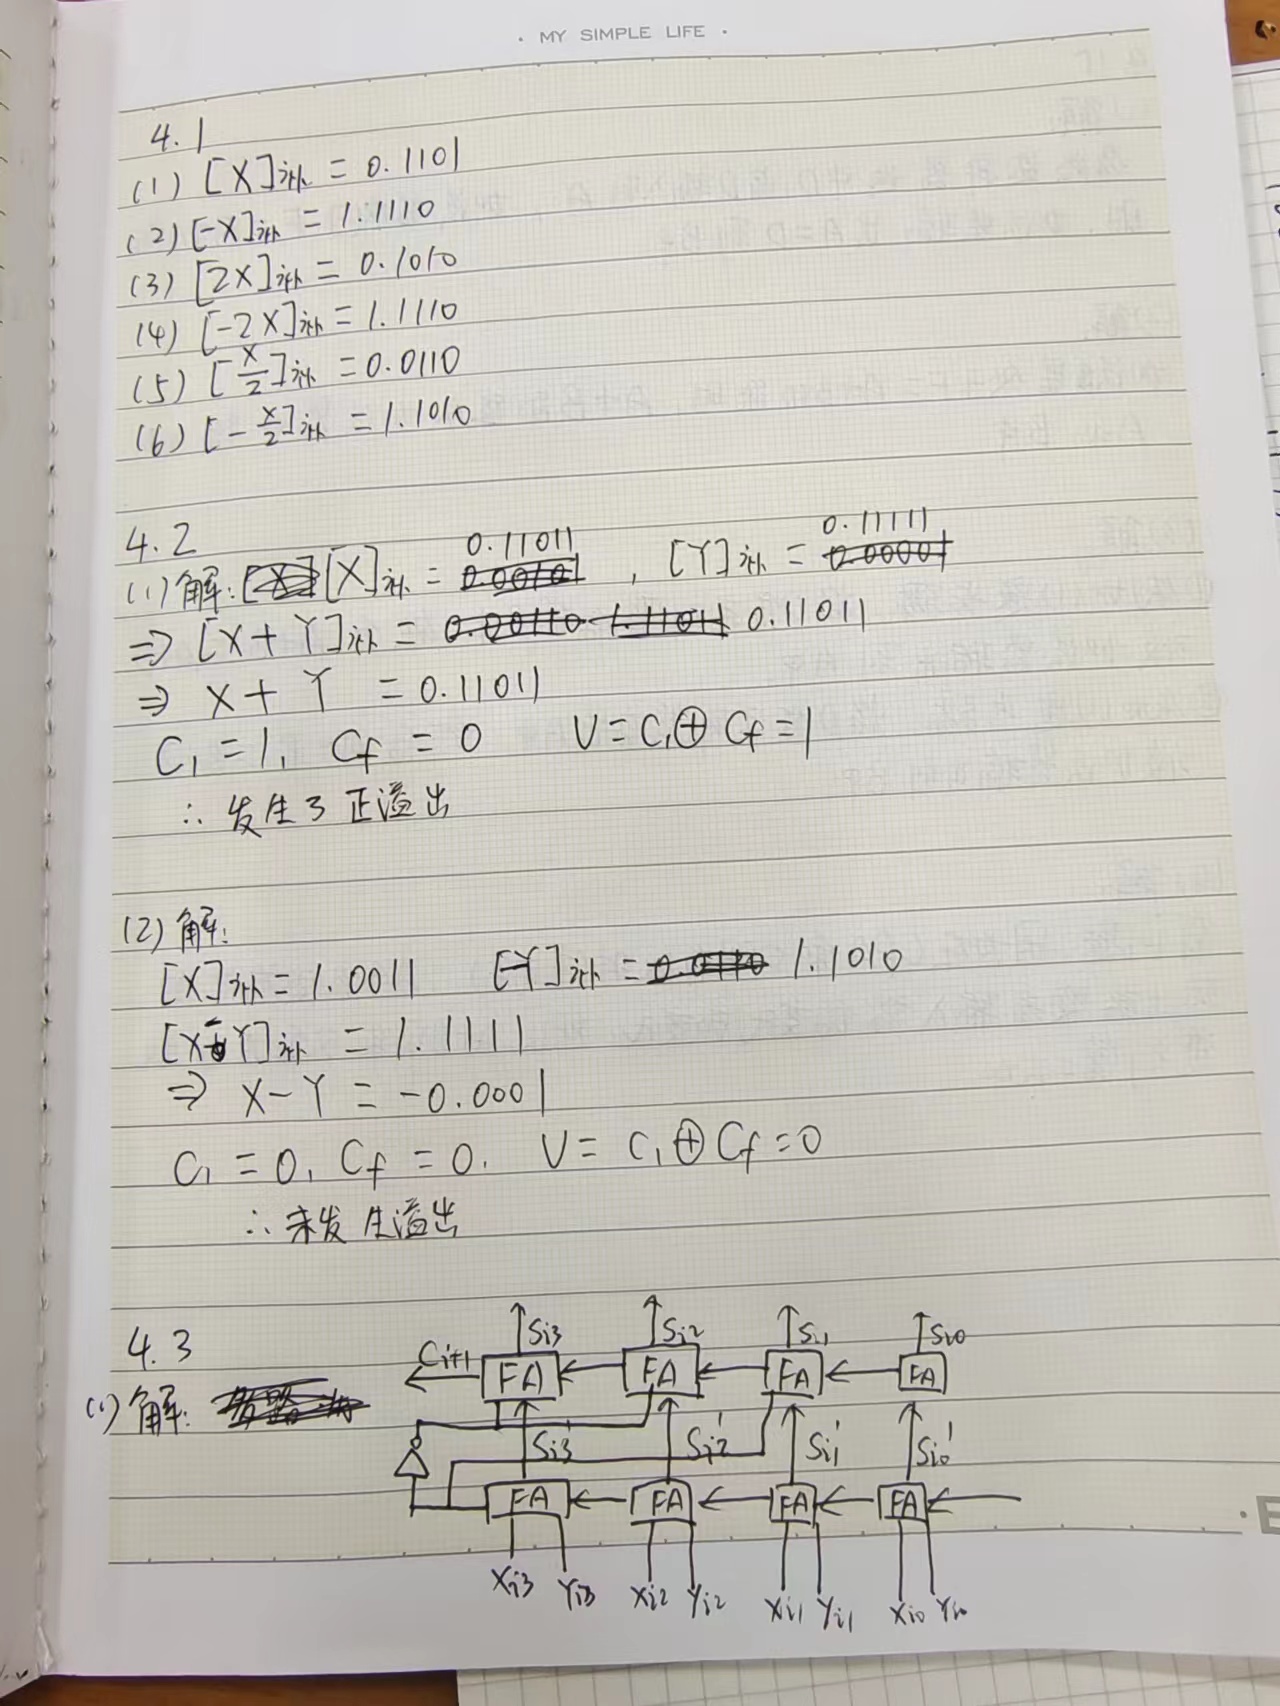 · MY SIMPLE LIFE ·
4.1
(1) [X]补 = 0.1101
(2) [-X]补 = 1.1110
(3) [2X]补 = 0.1010
(4) [-2X]补 = 1.1110
(5) [X/2]补 = 0.0110
(6) [-X/2]补 = 1.1010
4.2
(1) 解: [X]补 = 0.11011 , [Y]补 = 0.11111
⇒ [X + Y]补 = 0.11011
⇒ X + Y = 0.11011
C₁ = 1, Cf = 0 V = C₁⊕Cf = 1
∴ 发生了正溢出
(2) 解:
[X]补 = 1.0011 [-Y]补 = 1.1010
[X-Y]补 = 1.1111
⇒ X - Y = -0.0001
C₁ = 0, Cf = 0. V = C₁⊕Cf = 0
∴ 未发生溢出
4.3
(1) 解:
Si3 Si2 Si1 Si0
Ci+1 FA FA FA FA
Si3' Si2' Si1' Si0'
FA FA FA FA
Xi3 Yi3 Xi2 Yi2 Xi1 Yi1 Xi0 Yi0